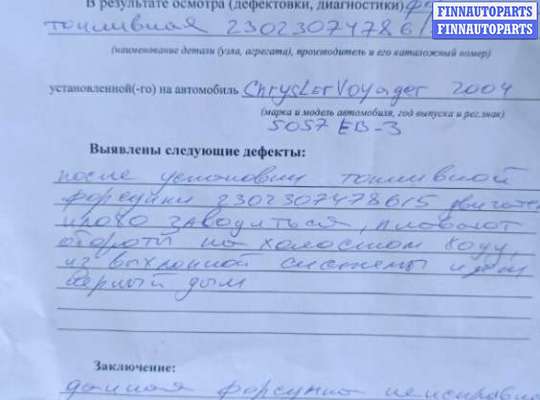 В результате осмотра (дефектовки, диагностики)
FINNAUTOPARTS
FINNAUTOPARTS
топливная 2302307478615
(наименование детали (узла, агрегата), производитель и его каталожный номер)
установленной(-го) на автомобиль Chrysler Voyager 2004
(марка и модель автомобиля, год выпуска и рег.знак)
5057 EB-3
Выявлены следующие дефекты:
после установки топливной
форсунки 2302307478615 двигатель
плохо заводиться, плавают
обороты на холостом ходу,
из выхлопной системы идёт
черный дым
Заключение:
данная форсунка неисправна
FINNAUTOPARTS
FINNAUTOPARTS